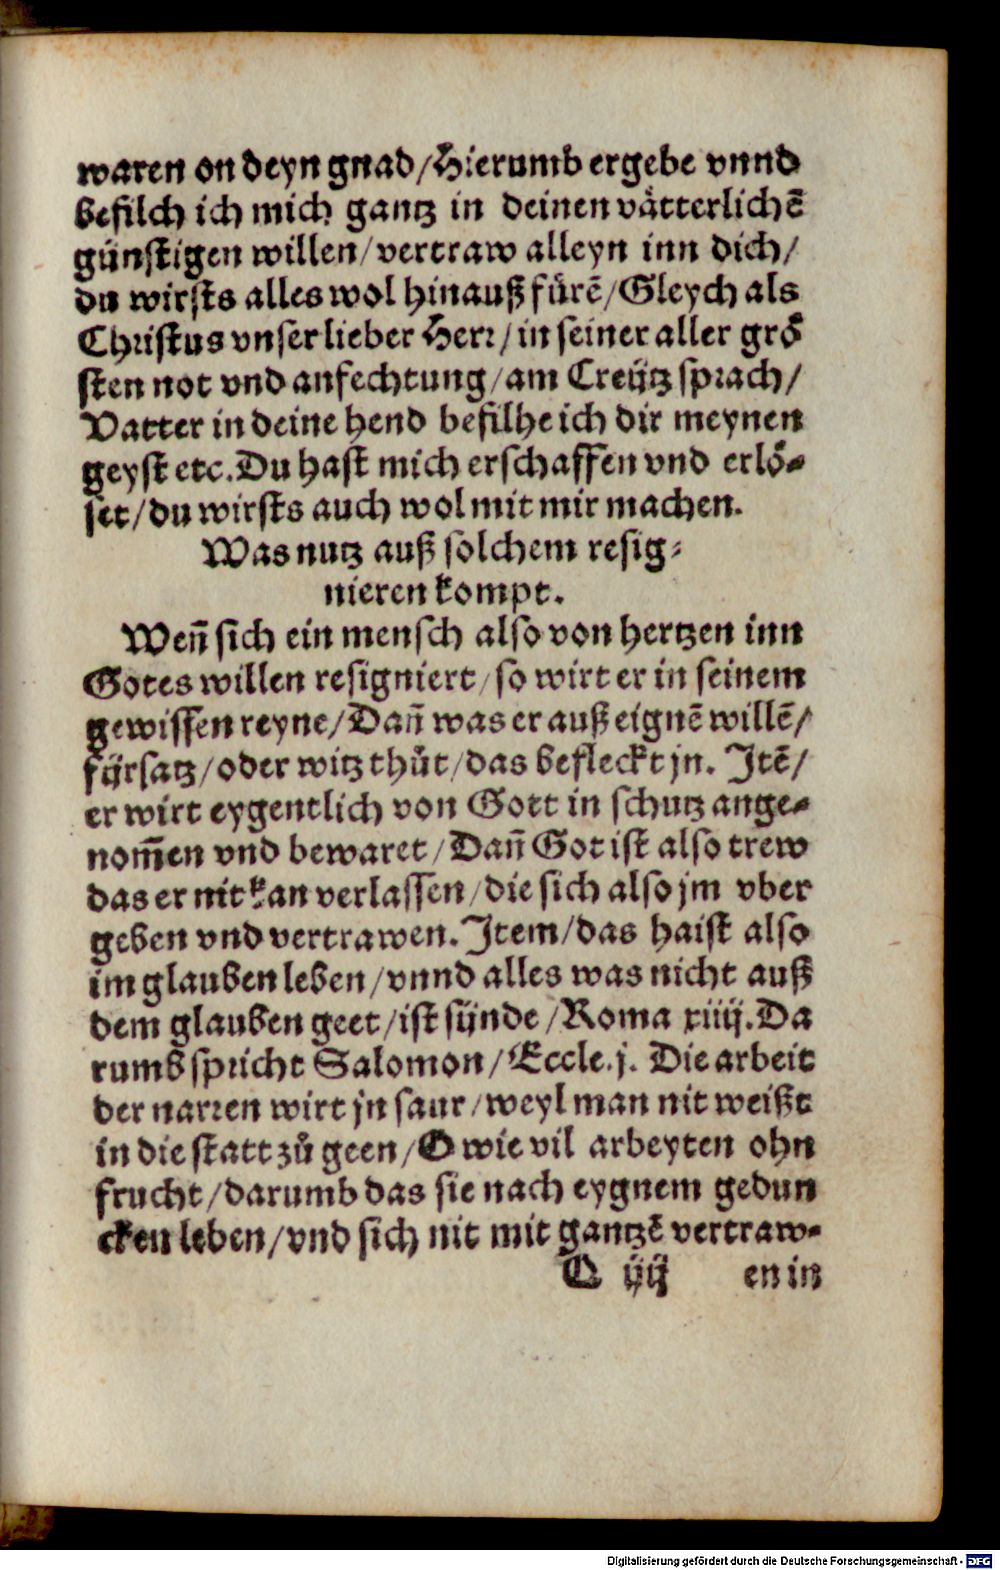 waren on deyn gnad/Hierumb ergebe vnnd
befilch ich mich gantz in deinen vätterlichē
günstigen willen/vertraw alleyn inn dich/
du wirsts alles wol hinauß fürē/Gleych als
Christus vnser lieber Herr/in seiner aller grö
sten not vnd anfechtung/am Creütz sprach/
Vatter in deine hend befilhe ich dir meynen
geyst etc.Du hast mich erschaffen vnd erlö-
set/du wirsts auch wol mit mir machen.
Was nutz auß solchem resig-
nieren kompt.
Weñ sich ein mensch also von hertzen inn
Gotes willen resigniert/so wirt er in seinem
gewissen reyne/Dañ was er auß eignē willē/
fürsatz/oder witz thůt/das befleckt jn. Itē/
er wirt eygentlich von Gott in schutz ange-
nom̄en vnd bewaret/Dañ Got ist also trew
das er nit kan verlassen/die sich also jm vber
geben vnd vertrawen.Item/das haist also
im glauben leben/vnnd alles was nicht auß
dem glauben geet/ist sünde/Roma xiiij.Da
rumb spricht Salomon/Eccle.j. Die arbeit
der narren wirt jn saur/weyl man nit weißt
in die statt zů geen/O wie vil arbeyten ohn
frucht/darumb das sie nach eygnem gedun
cken leben/vnd sich nit mit gantzē vertraw-
O iij en in
Digitalisierung gefördert durch die Deutsche Forschungsgemeinschaft - DFG